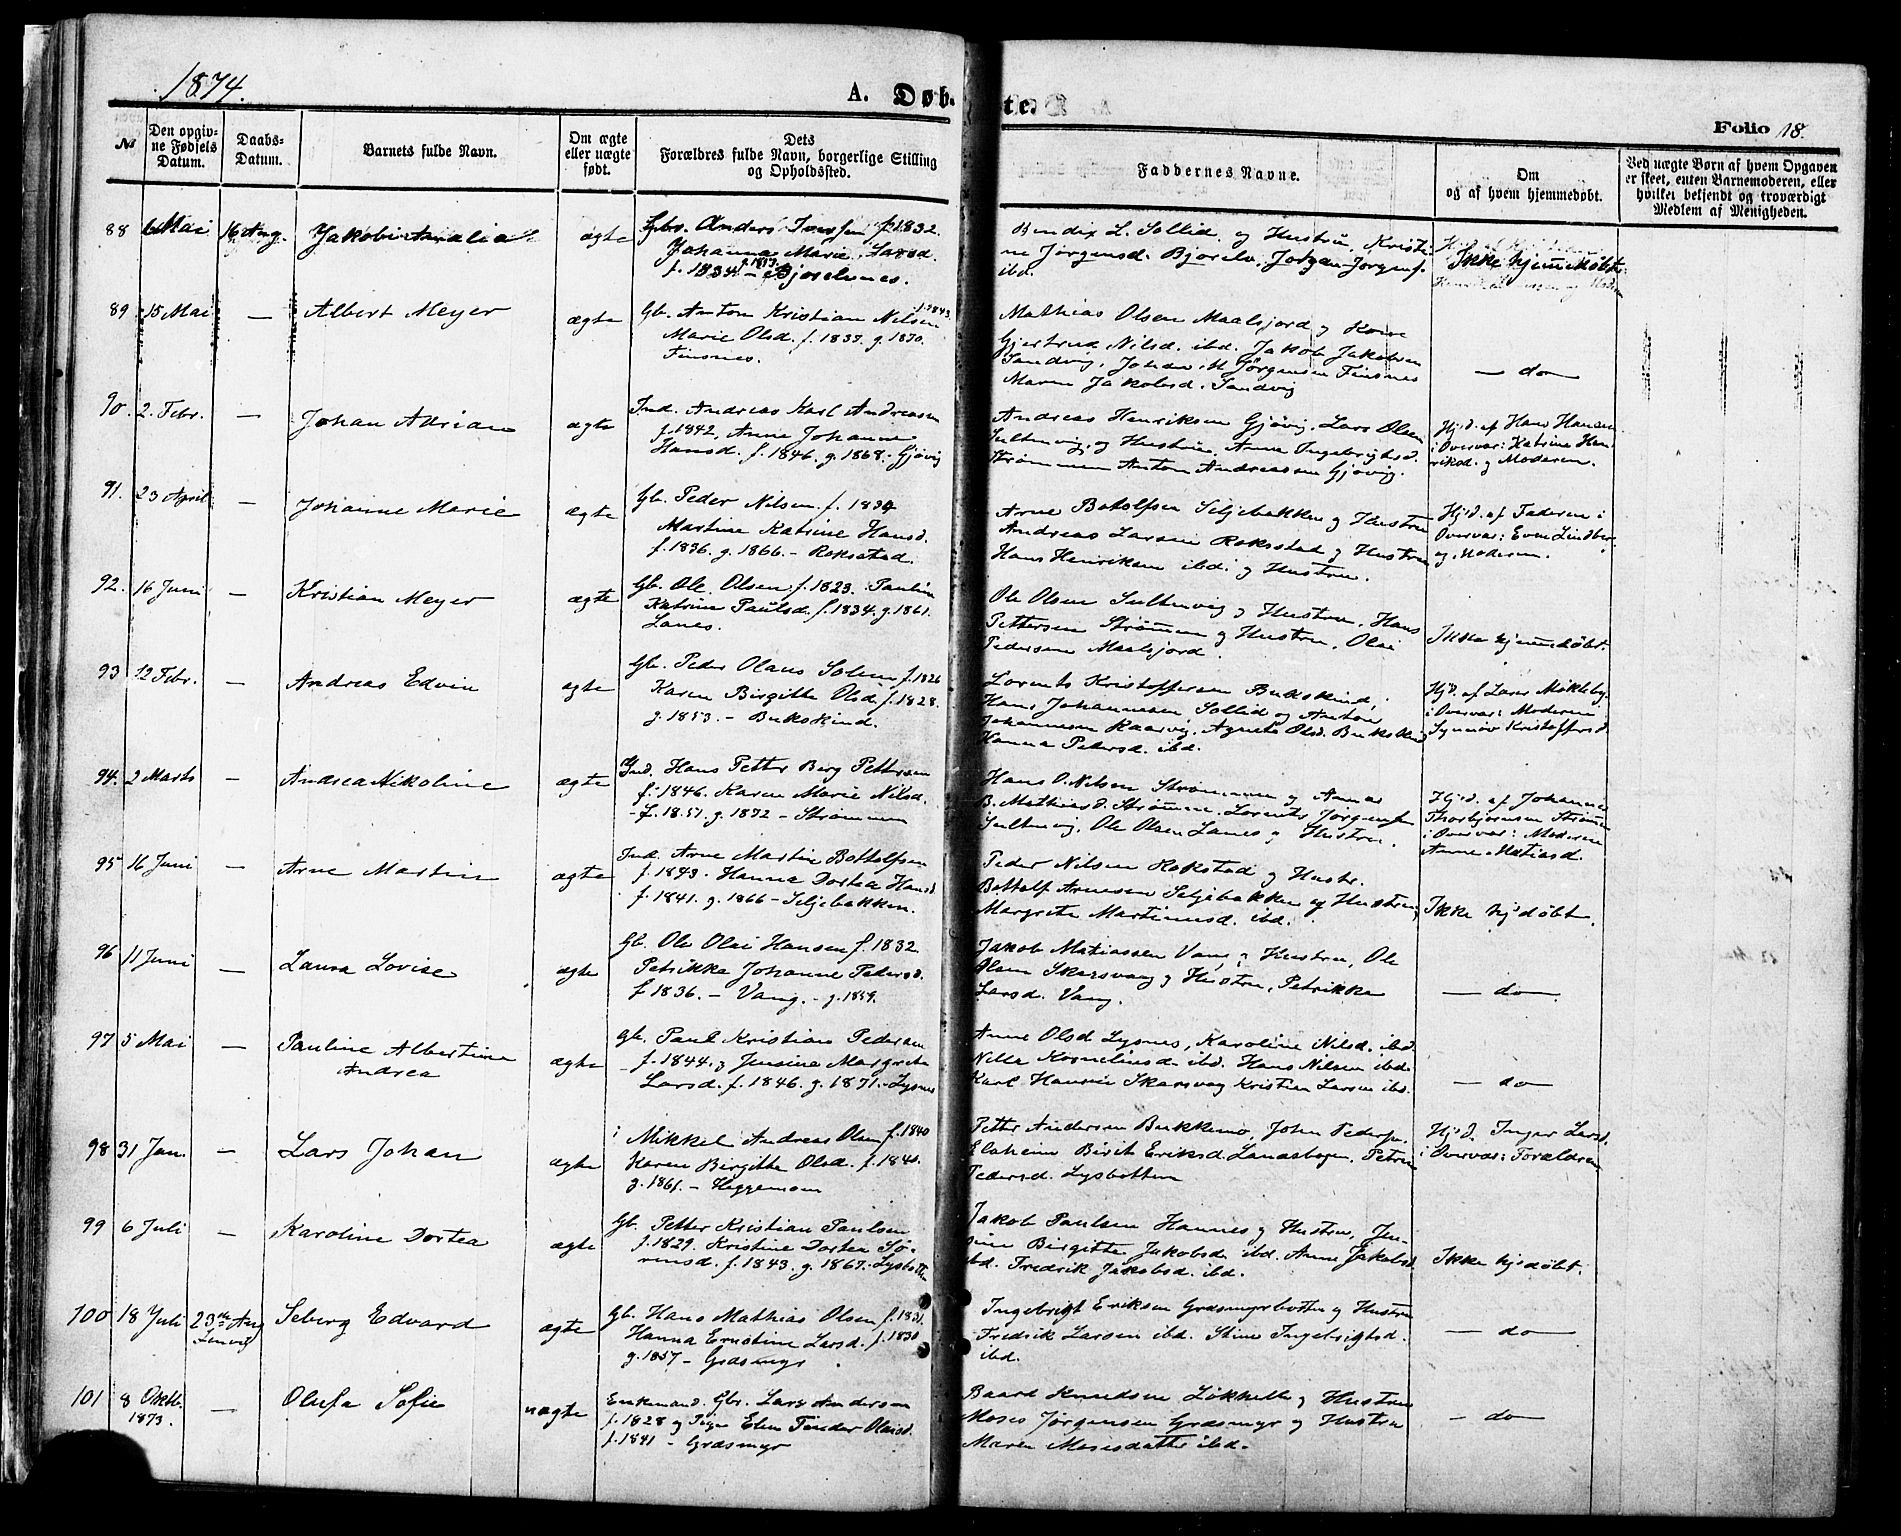 1874.
A. Døb-
te.
Folio 18.
№
Den opgiv-
ne Fødsels
Datum.
Daabs-
Datum.
Barnets fulde Navn.
Om ægte
eller uægte
født.
Dets
Forældres fulde Navn, borgerlige Stilling
og Opholdssted.
Faddernes Navne.
Om
og af hvem hjemmedøbt.
Ved uægte Børn af hvem Opgaven
er skeet, enten Barnemoderen, eller
hvilket bekjendt og troværdigt
Medlem af Menigheden.
88 6 Mai 16 Aug. Jakobi Amalia ægte
Gbr. Anders Iversen f. 1832.
Johanna Marie Larsd.
f. 1834. g. 1873. - Bjorelvnes.
Bendix L. Sollid og Hustru, Kristi-
ne Jørgensd. Bjorelv, Jørgen Jørgens.
ibd.
Ikke hjemmedøbt
89 15 Mai — Albert Meyer ægte
Gb. Anton Kristian Nilsen f. 1843.
Marie Olsd. f. 1833. g. 1870.
Finsnes.
Mathias Olsen Maalsjord og Kone
Gjertrud Nilsd. ibd. Jakob Jakobsen
Sandvig, Johan M Jørgensen Finsnes
Maren Jakobsd. Sandvig
— do —
90. 2. Febr. — Johan Adrian ægte
Ind. Andreas Karl Andreasen
f. 1842, Anne Johanne
Hansd. f. 1846. g. 1868. Gjøvig
Andreas Henriksen Gjøvig, Lars Olsen
Sultenvig, og Hustru, Anne Ingebrigtsd.
Strømmen Anton Andreassen Gjøvig.
Hjd. af Hans Hansen
i Overvær: Katrine Hen-
riksd. og Moderen.
91. 23 April — Johanne Marie ægte
Gb. Peder Nilsen f. 1834
Martine Katrine Hansd.
f. 1836. g. 1866. - Rokstad.
Arne Botolfsen Seljebakken og Hustru
Andreas Larsen Roksstad og Hustru
Hans Henriksen ibd. og Hustru.
Hjd. af Faderen i
Overvær: Even Lindber-
og Moderen.
92. 16 Juni — Kristian Meyer ægte
Gb. Ole Olsen f. 1823. Paulin
Katrine Paulsd. f. 1834. g. 1861.
Lanes.
Ole Olsen Sultenvig og Hustru, Hans
Pettersen Strømmen og Hustru, Olai
Pedersen Maalsjord.
Ikke hjemmedøbt.
93 12 Febr. — Andreas Edvin ægte
Gb. Peder Olaus Solem f. 1826
Karen Birgitte Olsd. f. 1828.
g. 1853. - Bukskind.
Lorents Kristoffersen Bukskind,
Hans Johannesen Sollid og Anton
Johannesen Kaarvig, Agnete Olsd. Bukskind
Hanna Petersd. ibd.
Hjd. af Lars Møkleby.
i Overvær: Moderen
Synnøv Kristoffersd.
94. 2 Marts — Andrea Nikoline ægte
Ind. Hans Petter Berg Pettersen
f. 1846. Karen Marie Nilsd.
- f. 1851. g. 1872 - Strømmen
Hans O. Nilsen Strømmen og Anna
B. Mathiasd. Strømmen. Lorents Jørgensen
Sultenvig, Ole Olsen Lanes og Hustru.
Hjd. af Johannes
Thorbjørnsen Strømen
i Overvær: Moderen
Anne Matiasd.
95 16 Juni — Arne Martin ægte
Ind. Arne Martin Bottolfsen
f. 1843. Hanna Dortea Hansd
f. 1841. g. 1866 - Seljebakken.
Peder Nilsen Rokstad og Hustr.
Bottolf Arnesen Seljebakken og Hustru,
Margrete Martinusd. ibd.
Ikke hjdøbt.
96 11 Juni — Laura Lovise ægte
Gb. Ole Olai Hansen f. 1832
Petrikke Johanne Pedersd.
f. 1836. - Vang. - g. 1859.
Jakob Matiassen Vang og Hustru, Ole
Olsen Skarsvaag og Hustru, Petrikke
Larsd. Vang.
— do —
97 5 Mai — Pauline Albertine
Andrea ægte
Gb. Paul Kristian Pedersen
f. 1844. og Jensine Margrete
Larsd. f. 1846. g. 1871. - Lysnes
Anne Olsd Lysnes, Karoline Nilsd. ibd
Nille Korneliusd. ibd. Hans Nilsen ibd.
Karl Hansen Skarsvag Kristian Larsen ibd.
— do —
98 31 Jan. — Lars Johan ægte
i Mikkel Andreas Olsen f. 1840
Karen Birgitte Olsd. f. 1840.
g. 1861. - Heggemoen
Petter Andersen Bukkemo, John Peders.
Elvheim Birit Eriksd. Lanesbogen, Petra
Pedersd. Lysbotten
Hjd. Inger Larsd.
i Overvær: Forældren
99 6 Juli — Karoline Dortea ægte
Gb. Petter Kristian Paulsen
f. 1829. Kristine Dortea Sø-
rensd. f. 1843. g. 1867. - Lysbotten
Jakob Paulsen Hannes og Hustru, Jen-
sine Birgitte Jakobsd. ibd. Anne Jakobsd
ibd. Fredrik Jakobsd. ibd.
Ikke hjdøbt.
100 18 Juli 23de Aug Seberg Edvard ægte
Gb. Hans Mathias Olsen f. 1831.
Hanna Ernstine Larsd. f. 1830
g. 1857 - Græsmyr
Ingebrigt Eriksen Græsmyrbotten og Hustru
Fredrik Larsen ibd. Stine Ingebrigtsd.
ibd.
— do —
101 8 Oktb.
1873. — Olufa Sofie uægte
Enkemand. Gbr. Lars Andersen
f. 1828 og Pige Elen Tinder Olaisd.
f. 1841 - Græsmyr
Baard Knudsen Løkhelle og Hustru
Moses Jørgensen Græsmyr og Hustru
Maren Mosesdatter ibd.
— do —